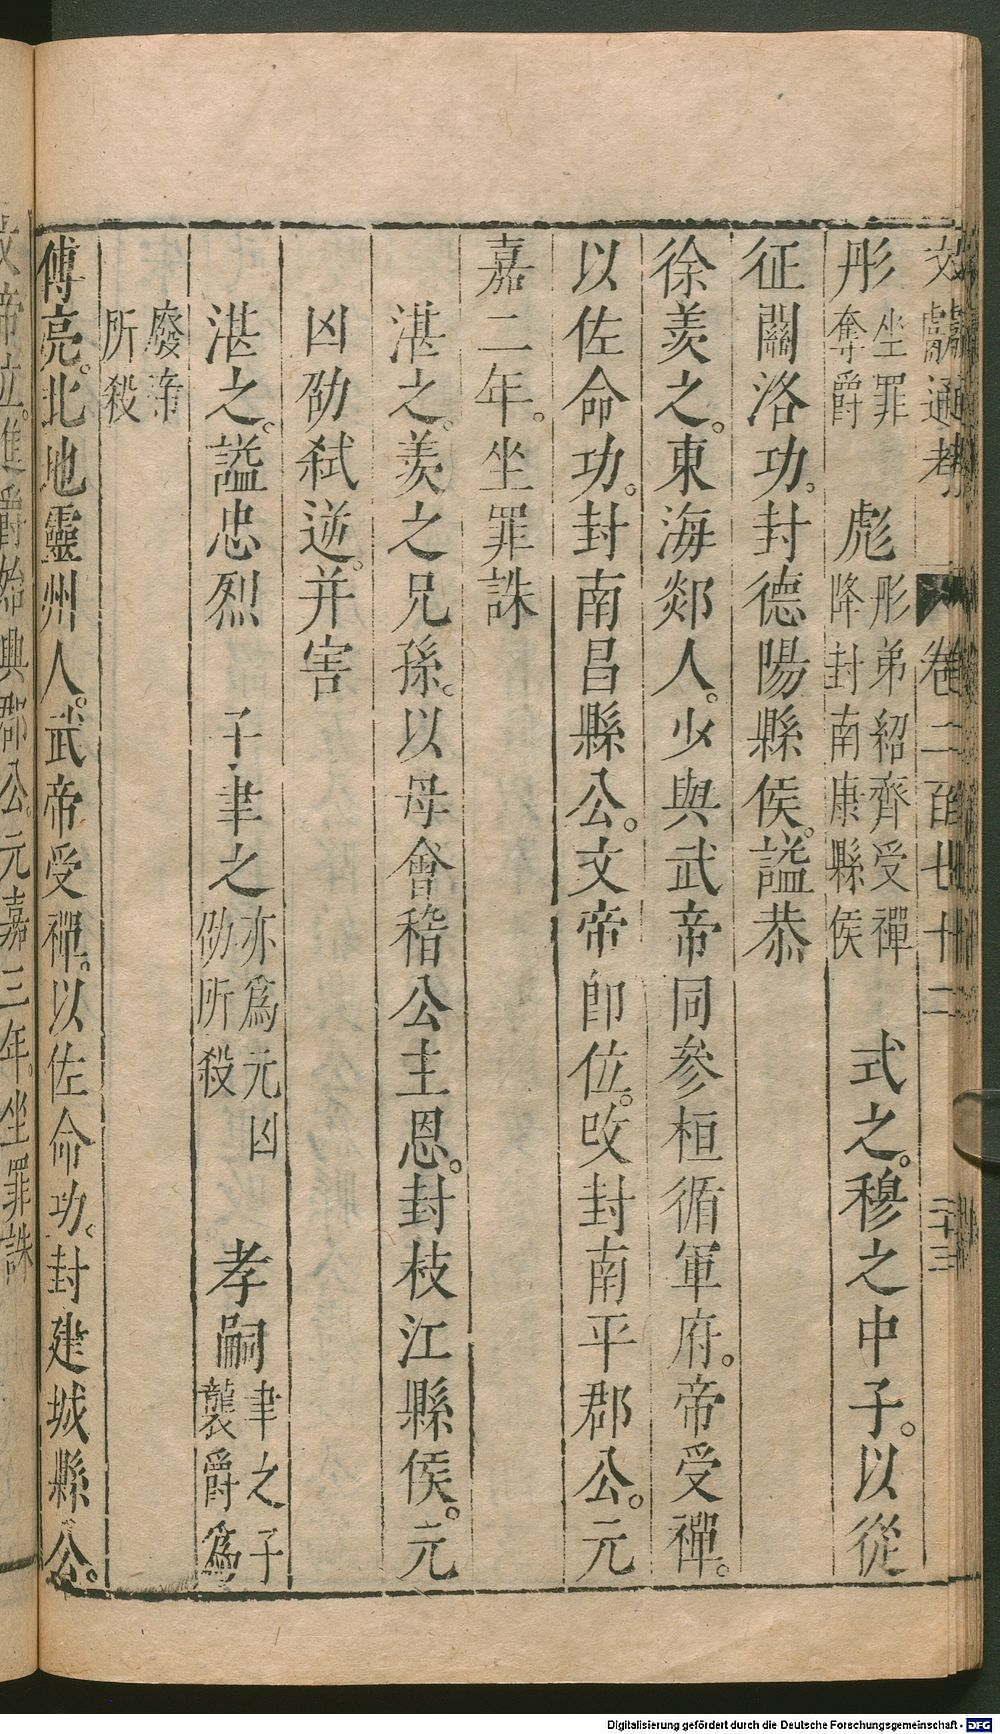 文獻通考 卷二百七十二 二十三
彤坐罪奪爵 彪彤弟紹齊受禪降封南康縣侯 式之。穆之中子。以從
征關洛功。封德陽縣侯。謚恭
徐羨之。東海郯人。少與武帝同參桓循軍府。帝受禪。
以佐命功。封南昌縣公。文帝卽位。改封南平郡公。元
嘉二年。坐罪誅
湛之。羨之兄孫。以母會稽公主恩。封枝江縣侯。元
凶劭弑逆。并害
湛之。謚忠烈 子聿之亦爲元凶劭所殺 孝嗣聿之子襲爵爲
廢帝所殺
傅亮。北地靈州人。武帝受禪。以佐命功。封建城縣公。
文帝立。進爵始興郡公。元嘉三年。坐罪誅
Digitalisierung gefördert durch die Deutsche Forschungsgemeinschaft - DFG